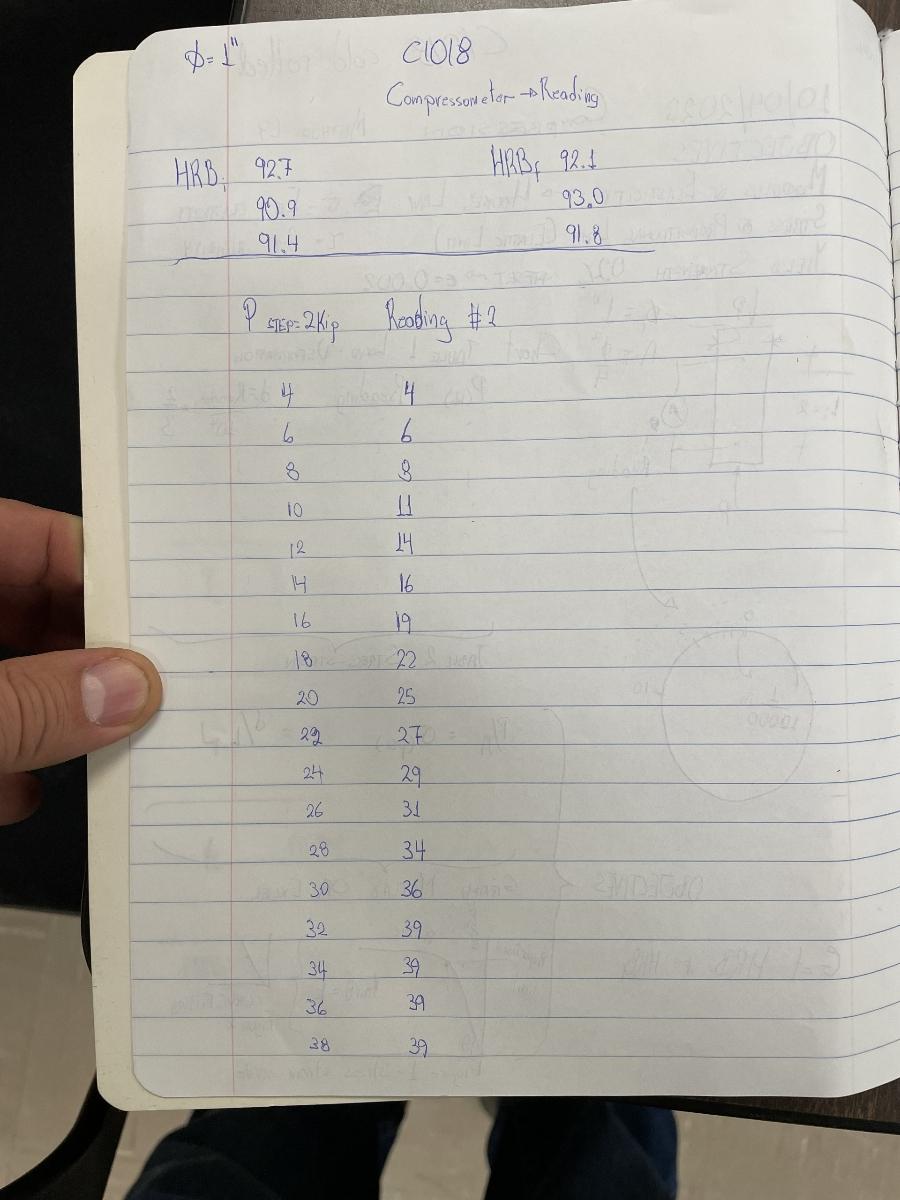 ϕ=1" C1018
Compressometer → Reading
HRBi 92.7 HRBf 92.1
90.9 93.0
91.4 91.8
P STEP=2Kip Reading #2
4 4
6 6
8 8
10 11
12 14
14 16
16 19
18 22
20 25
22 27
24 29
26 31
28 34
30 36
32 39
34 39
36 39
38 39